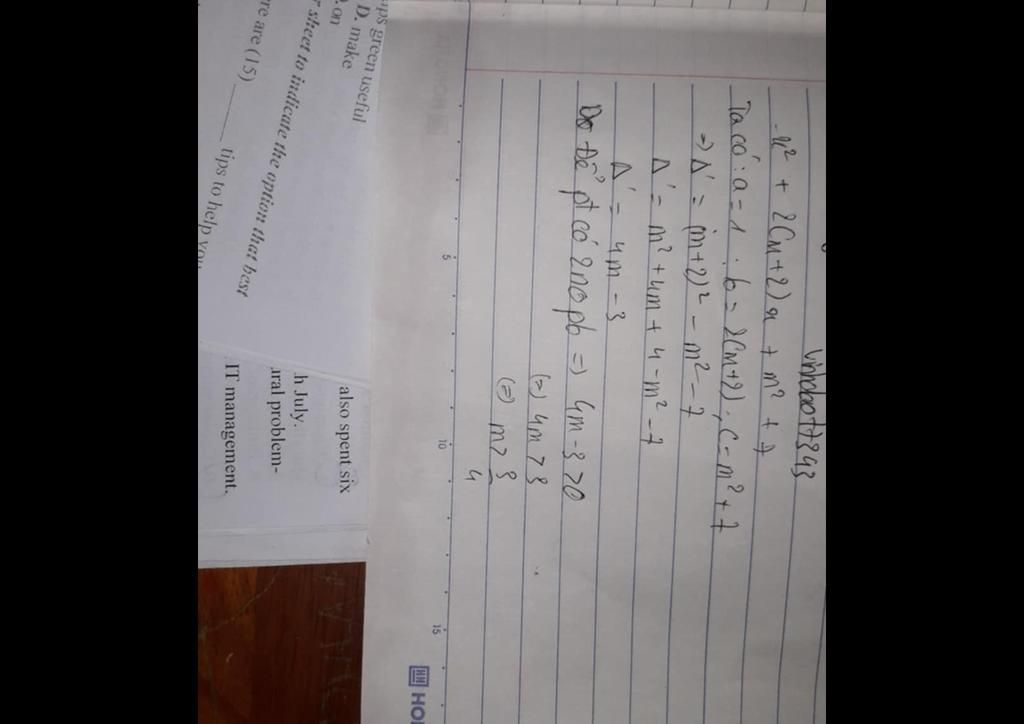 vinhbao17343
x² + 2(m+2)x + m² + 7
Ta có: a = 1 . b = 2(m+2), c = m² + 7
=> Δ' = (m+2)² - m² - 7
Δ' = m² + 4m + 4 - m² - 7
Δ' = 4m - 3
Để pt có 2no pb => 4m - 3 > 0
(=) 4m > 3
(=) m > 3
4
5
10
15
HO
ips green useful
D. make
. on
r sheet to indicate the option that best
re are (15) ______ tips to help you
also spent six
h July.
ral problem-
IT management.